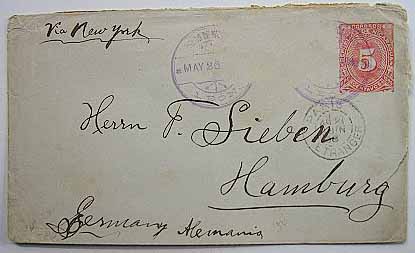 Via New York
MAY 26
5
Herrn F. Sieben
ETRANGER
Hamburg
Germany Alemania